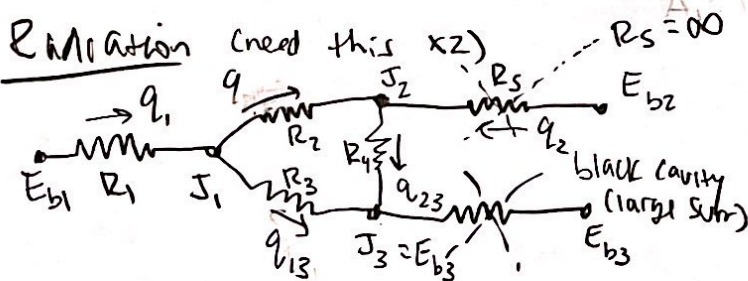 Radiation (need this x2)
R5 = ∞
q1
q
J2
R5
Eb2
R2
q2
Eb1
R1
J1
R4
q23
black cavity
(large surr)
R3
q13
J3 = Eb3
Eb3